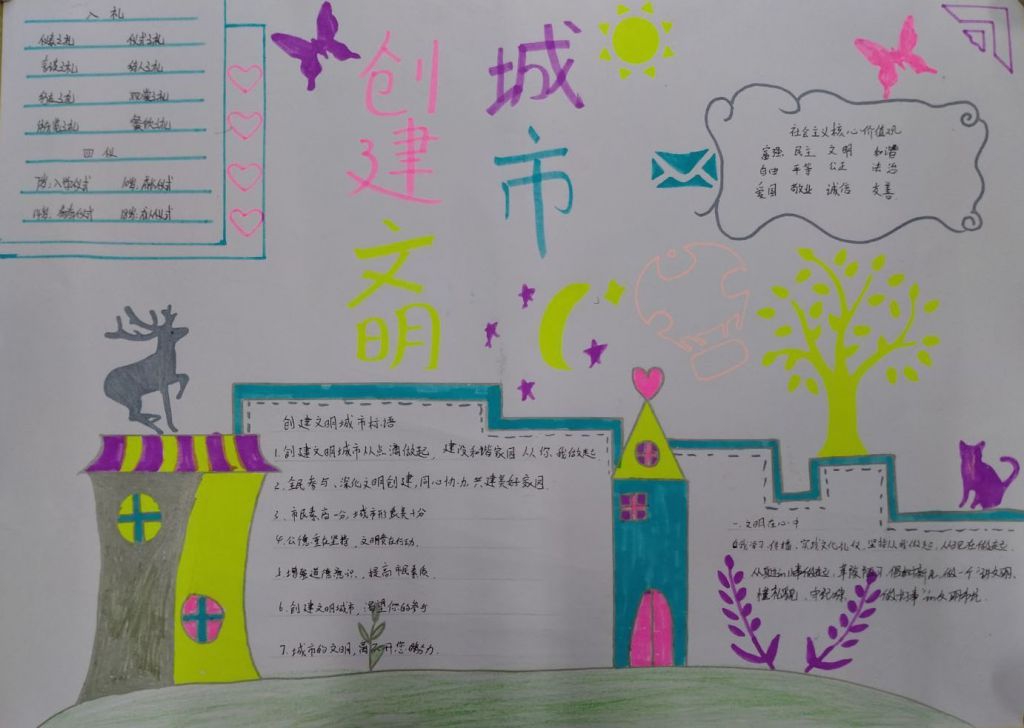 八礼
仪表之礼 仪式之礼
言谈之礼 待人之礼
行走之礼 观赏之礼
游览之礼 餐饮之礼
四仪
7岁:入学仪式 10岁:成长仪式
14岁:青春仪式 18岁:成人仪式
创建
文明
城市
社会主义核心价值观
富强 民主 文明 和谐
自由 平等 公正 法治
爱国 敬业 诚信 友善
创建文明城市标语
1.创建文明城市从点滴做起, 建设和谐家园从你我做起.
2.全民参与、深化文明创建,同心协力共建美好家园.
3.市民素高一分,城市形最美十分
4.公德重在坚持,文明贵在行动.
5.增强道德意识,提高市民素质.
6.创建文明城市,渴望你的参与
7.城市的文明,离不开您努力.
一.文明在心中
学习、传播、实践文化礼仪,坚持从我做起,从现在做起
从身边小事做起,革除陋习,倡树新风,做一个"讲文明、
懂礼貌、守纪